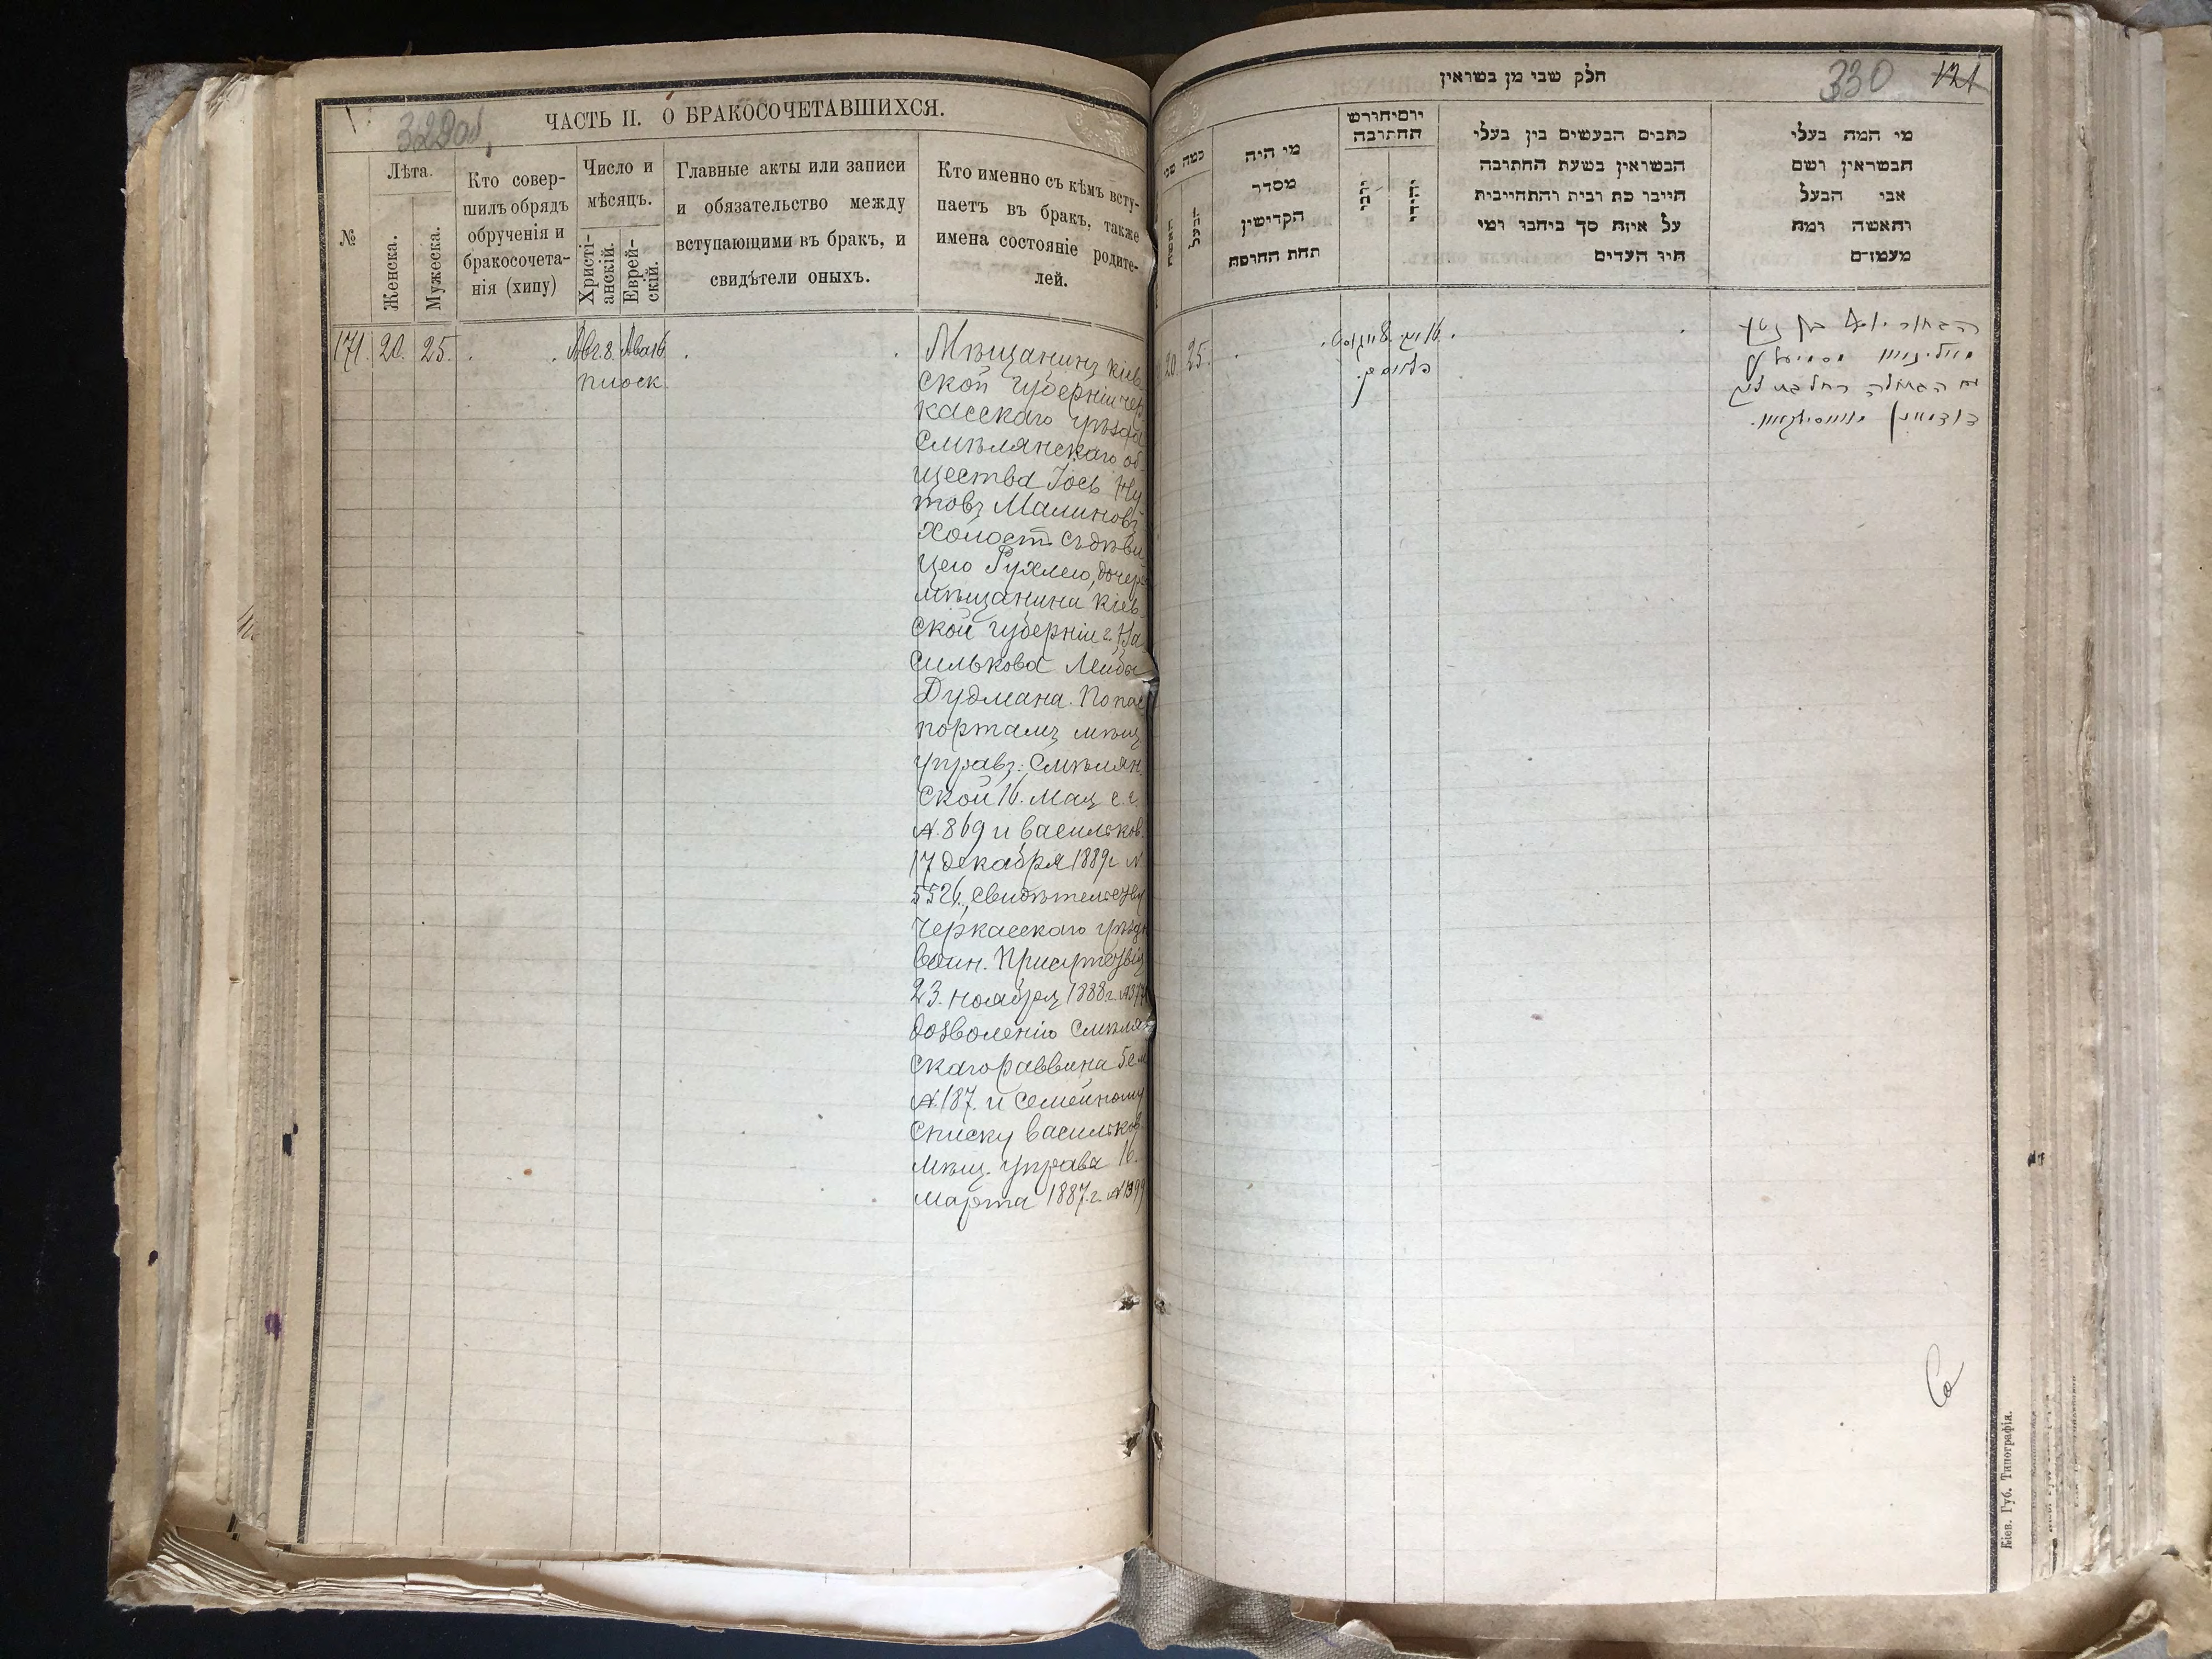 329об.
ЧАСТЬ II. О БРАКОСОЧЕТАВШИХСЯ.
№
Лѣта.
Женска.
Мужеска.
Кто совер-
шилъ обрядъ
обрученія и
бракосочета-
нія (хипу)
Число и
мѣсяцъ.
Христі-
анскій.
Еврей-
скій.
Главные акты или записи
и обязательство между
вступающими въ бракъ, и
свидѣтели оныхъ.
Кто именно съ кѣмъ всту-
паетъ въ бракъ, также
имена состояніе родите-
лей.
171. 20. 25. Авг. 8. Ава 16
плоск.
Мѣщанинъ Кіев-
ской губерніи Чер
касскаго уѣзда
Смѣлянскаго об-
щества Іось Ну
товъ Малиновъ
Холост съ дѣви
цею Рухлею, дочерь
мѣщанина Кіев
ской губерніи г. Ва
силькова Лейбы
Дудмана. По пас
портамъ мѣщ
управъ: Смѣлян
ской 16. мая с. г.
№ 869 и Васильков.
17 декабря 1889 г. №
5526., свидѣтельству
Черкасскаго уѣздн
воин. Присутствія
23. ноября 1888 г.
дозволенію Смѣлян
скаго раввина 5 с. м
№ 187. и Семейному
списку Васильков
мѣщ. управа 16.
марта 1887. г. № 1399
חלק שני מן נשואין
330
121
כמה שני
האשה
הבעל
מי היה
מסדר
הקדישין
תחת החופה
יום וחודש
החתונה
כתבים הנעשים בין בעלי
הנשואין בשעת החתונה
חייבו כת רבית והתחייבית
על איזה סך ביחבו ומי
היו העדים
מי המה בעלי
הנשואין ושם
אבי הבעל
והאשה ומה
מעמדם
20. 25.
הבחור יוסף בן
הבתולה רחל בת
Со
Кіев. Губ. Типографія.